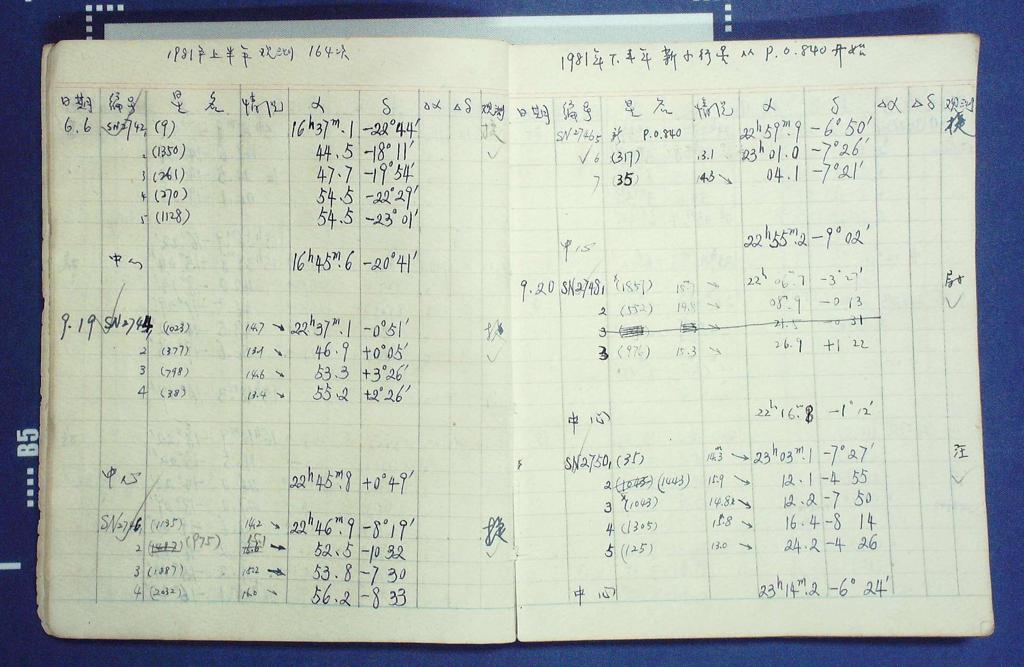 1981年上半年观测 164次
日期 编号 星名 情况 α δ Δα Δδ 观测
6.6 SN2742, (9) 16ʰ37ᵐ.1 -22°44′
2 (1350) 44.5 -18°11′
3 (261) 47.7 -19°54′
4 (270) 54.5 -22°29′
5 (1128) 54.5 -23°01′
中心 16ʰ45ᵐ.6 -20°41′
9.19 SN2744, (1023) 14.7 → 22ʰ37ᵐ.1 -0°51′
2 (377) 13.1 → 46.9 +0°05′
3 (798) 14.6 → 53.3 +3°26′
4 (383) 13.4 → 55.2 +2°26′
中心 22ʰ45ᵐ.8 +0°49′
SN2746, (1135) 14.2 → 22ʰ46ᵐ.9 -8°19′
2 (975) 15.1 → 52.5 -10 32
3 (1087) 15.2 → 53.8 -7 30
4 (2032) 16.0 → 56.2 -8 33
1981年下半年新小行星从 P.O.840 开始
日期 编号 星名 情况 α δ Δα Δδ 观测
SN27465 新 P.O.840 22ʰ59ᵐ.9 -6°50′
✓6 (317) 13.1 23ʰ01.0 -7°26′
7 (35) 14.3 → 04.1 -7°21′
中心 22ʰ55ᵐ.2 -9°02′
9.20 SN2748, (1851) 15.7 → 22ʰ06ᵐ.7 -3°27′
2 (552) 14.8 → 08.9 -0 13
3 21.5 -0 31
3 (976) 15.3 → 26.9 +1 22
中心 22ʰ16ᵐ.8 -1°12′
SN2750, (35) 14.3 → 23ʰ03ᵐ.1 -7°27′ 汪
2 (1043) (1443) 15.9 → 12.1 -4 55
3 (1043) 14.8 → 12.2 -7 50
4 (1305) 15.8 → 16.4 -8 14
5 (125) 13.0 → 24.2 -4 26
中心 23ʰ14ᵐ.2 -6°24′
B5